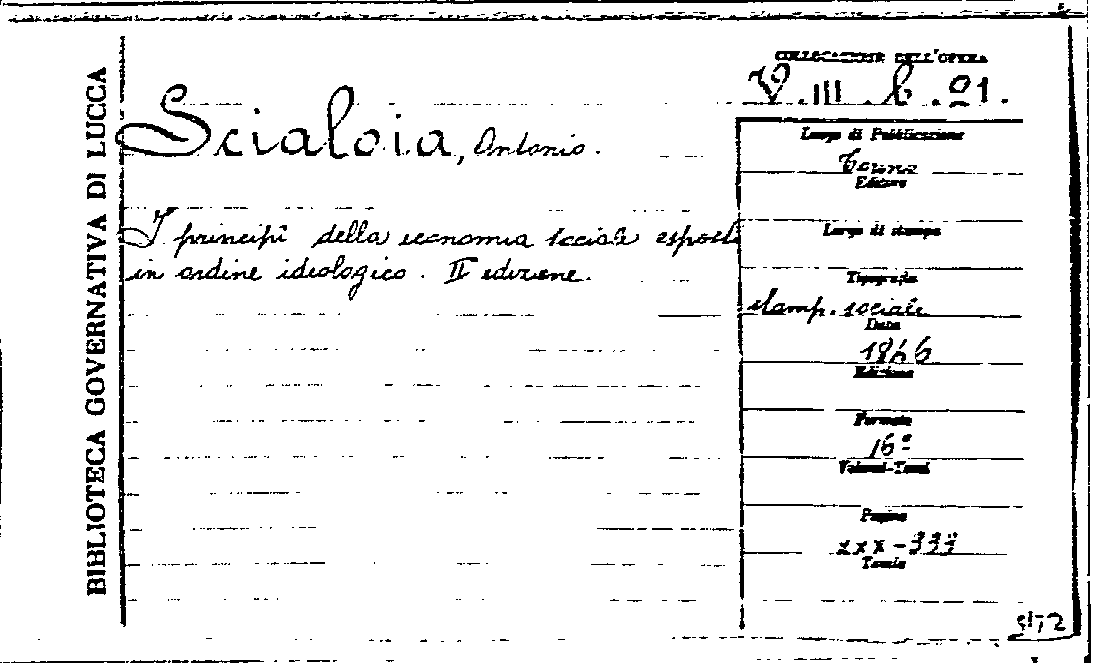 BIBLIOTECA GOVERNATIVA DI LUCCA
COLLOCAZIONE DELL'OPERA
V.III.b.21.
Scialoia, Antonio.
I principî della economia sociale esposti
in ordine ideologico. II edizione.
Luogo di Pubblicazione
Torino
Editore
Luogo di stampa
Tipografia
stamp. sociale
Data
1846
Edizione
Formato
16º
Volumi-Tomi
Pagine
xxx-333
Tavole